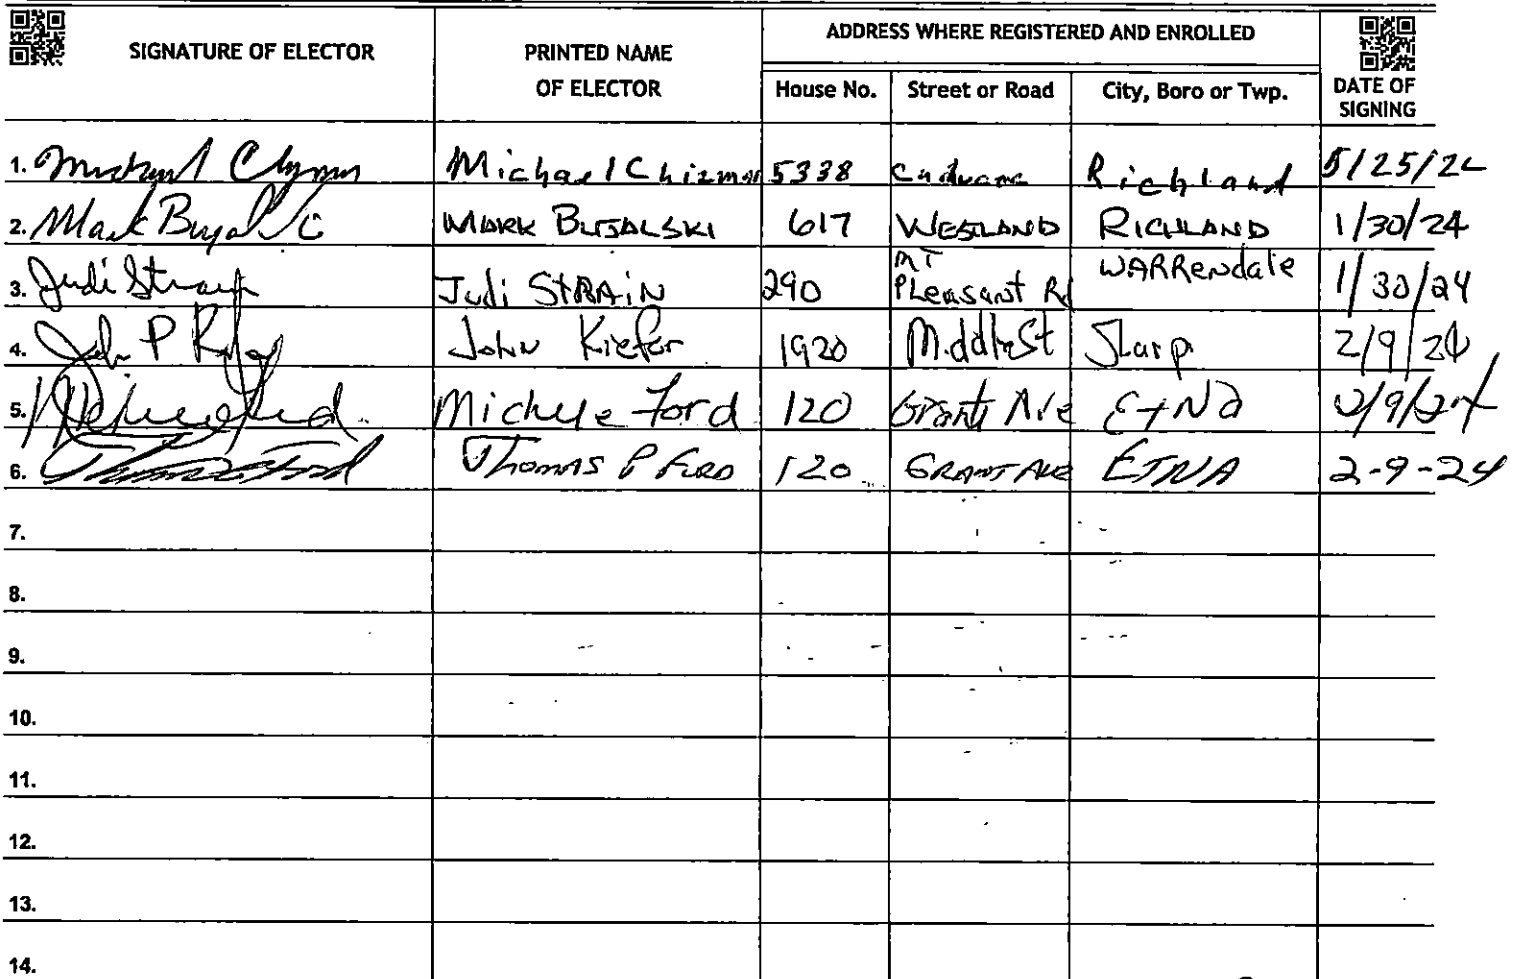 SIGNATURE OF ELECTOR
PRINTED NAME OF ELECTOR
ADDRESS WHERE REGISTERED AND ENROLLED
House No. Street or Road City, Boro or Twp.
DATE OF SIGNING
1. Michael Chizmar 5338 Richland 5/25/24
2. MARK BUJALSKI 617 WESTLAND RICHLAND 1/30/24
3. Judi Strain Judi STRAIN 290 MT Pleasant Rd WARRendale 1/30/24
4. John Kiefer 1920 Middle St Sharp 2/9/24
5. Michele Ford 120 Grant Ave EtNa 2/9/24
6. Thomas P FORD 120 GRANT AVE ETNA 2-9-24
7.
8.
9.
10.
11.
12.
13.
14.